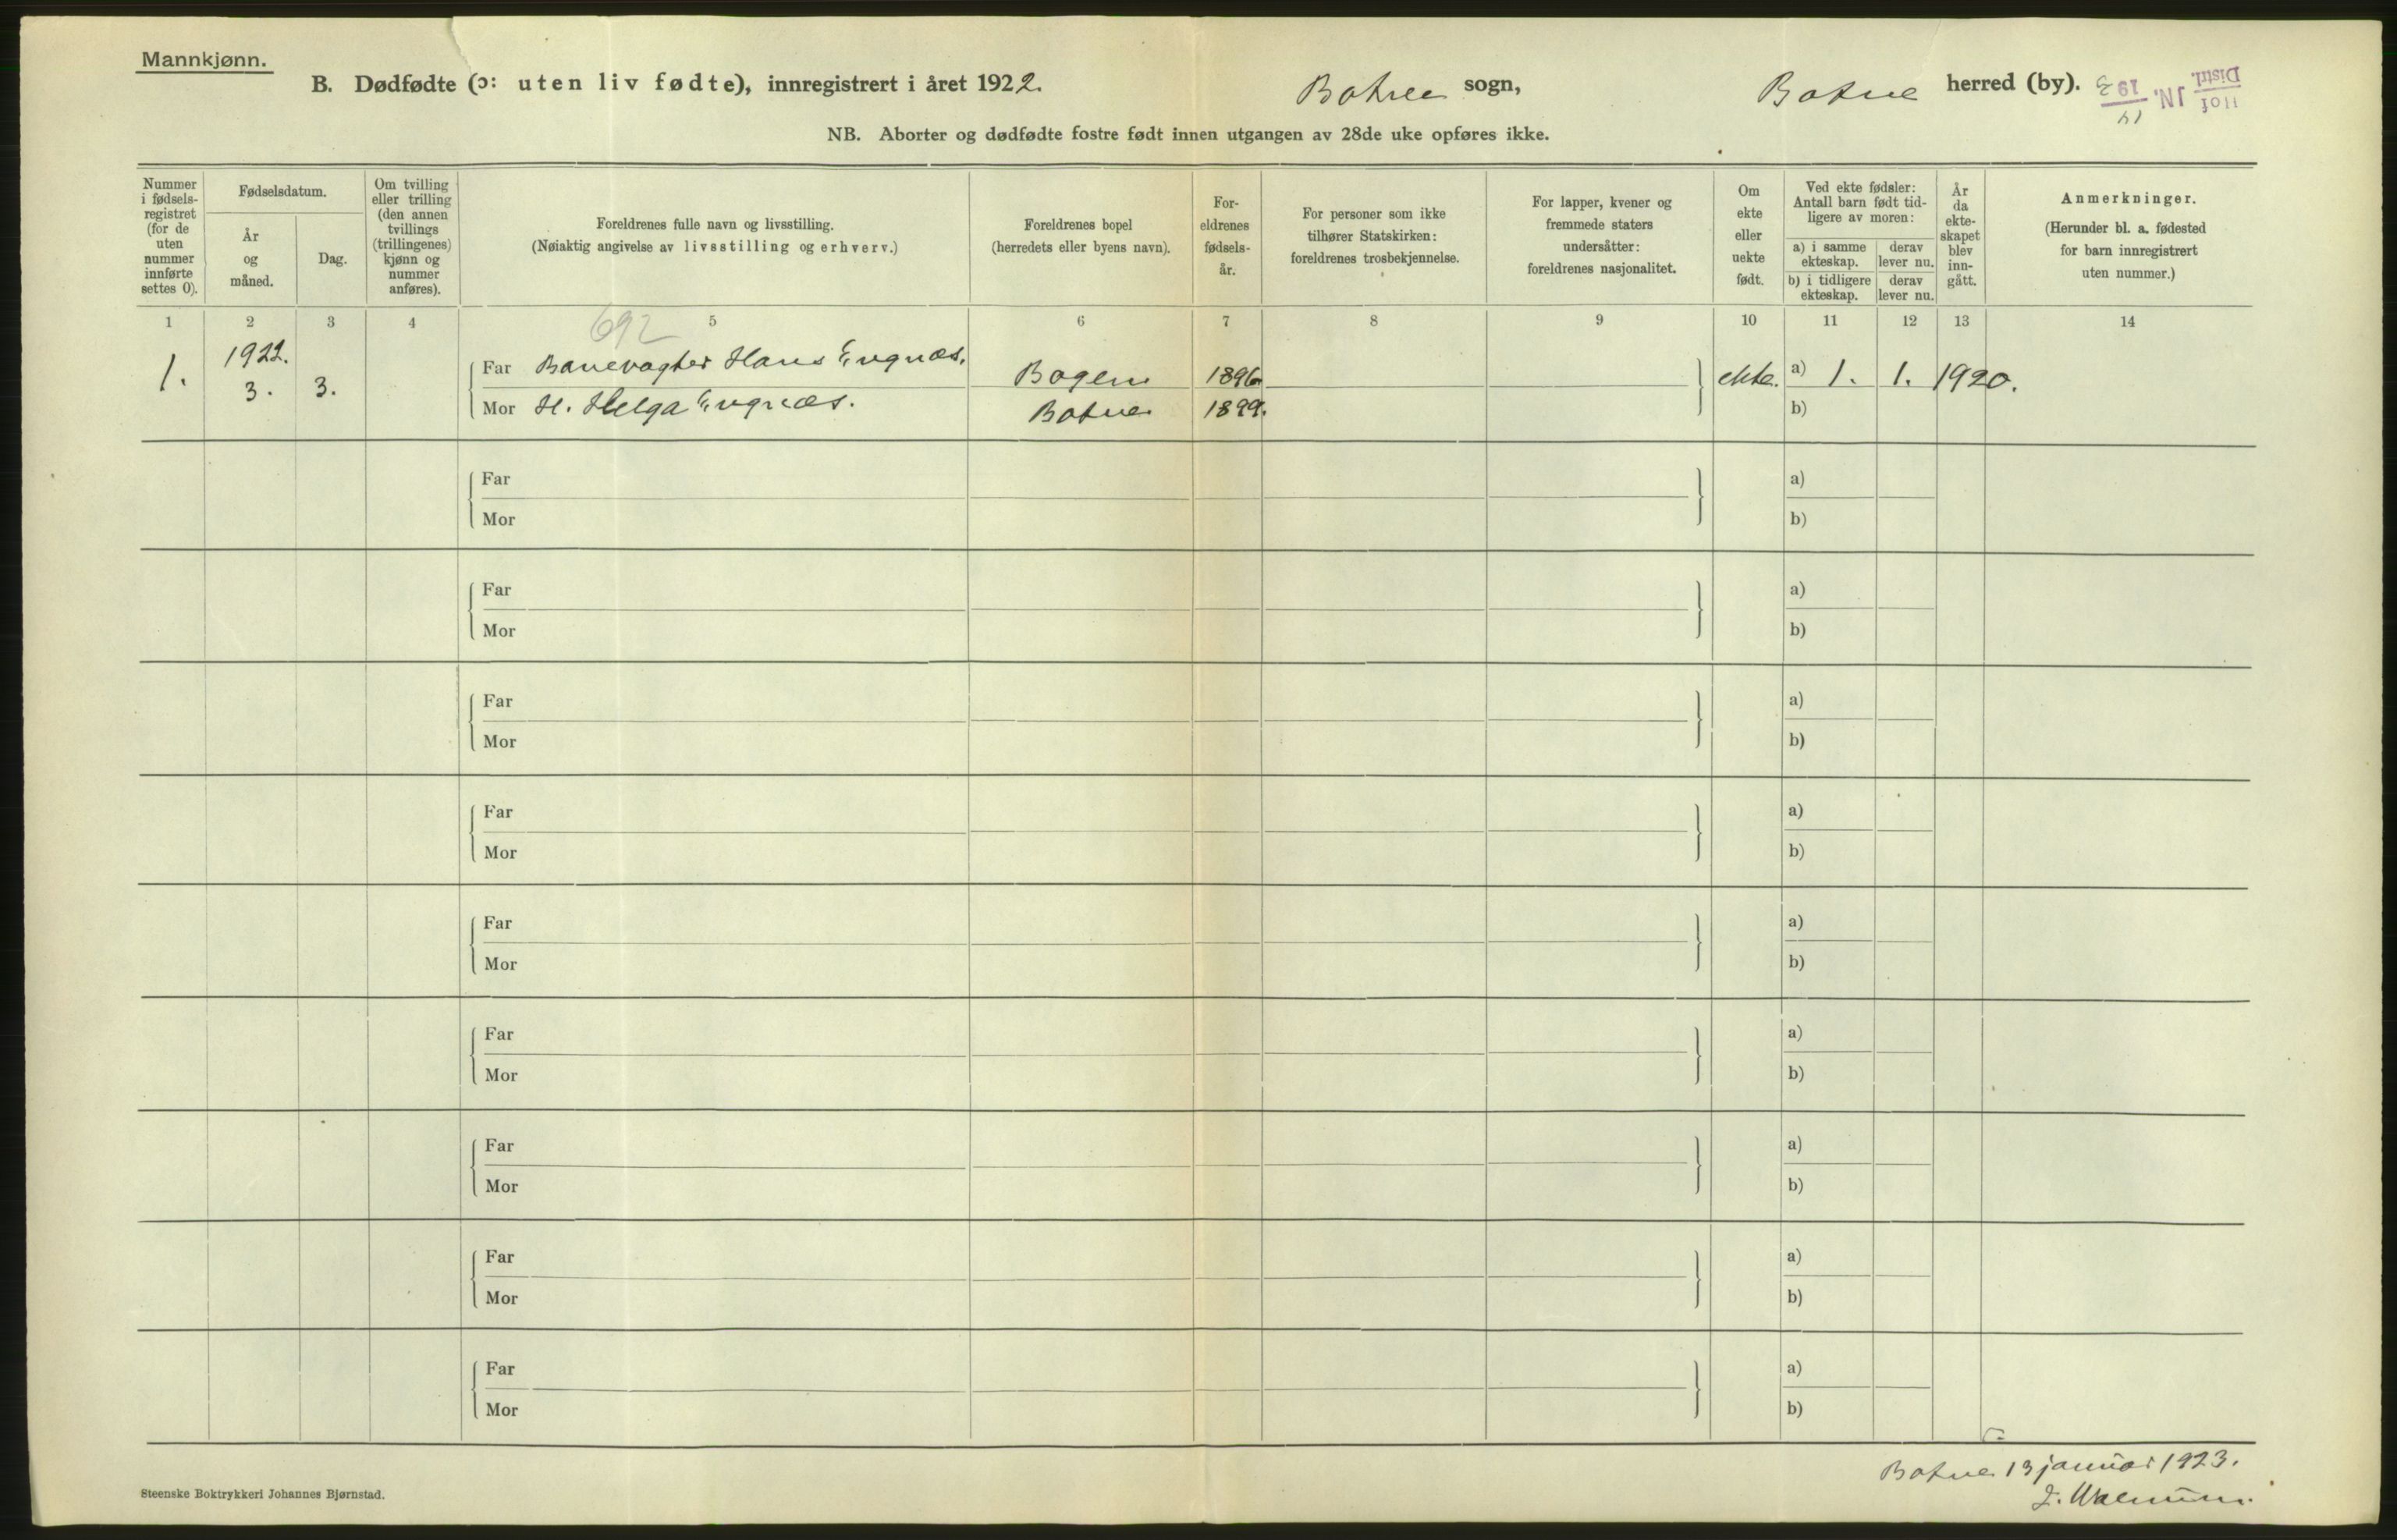 Mannkjønn.
B. Dødfødte (ɔ: uten liv fødte), innregistrert i året 1922. Botne sogn, Botne herred (by).
Hof Distrl. JN. 14 1923
NB. Aborter og dødfødte fostre født innen utgangen av 28de uke opføres ikke.
Nummer
i fødsels-
registret
(for de
uten
nummer
innførte
settes 0).
Fødselsdatum.
År
og
måned.
Dag.
Om tvilling
eller trilling
(den annen
tvillings
(trillingenes)
kjønn og
nummer
anføres).
Foreldrenes fulle navn og livsstilling.
(Nøiaktig angivelse av livsstilling og erhverv.)
Foreldrenes bopel
(herredets eller byens navn).
For-
eldrenes
fødsels-
år.
For personer som ikke
tilhører Statskirken:
foreldrenes trosbekjennelse.
For lapper, kvener og
fremmede staters
undersåtter:
foreldrenes nasjonalitet.
Om
ekte
eller
uekte
født.
Ved ekte fødsler:
Antall barn født tid-
ligere av moren:
a) i samme
ekteskap.
derav
lever nu.
b) i tidligere
ekteskap.
derav
lever nu.
År
da
ekte-
skapet
blev
inn-
gått.
Anmerkninger.
(Herunder bl. a. fødested
for barn innregistrert
uten nummer.)
1 2 3 4 5 6 7 8 9 10 11 12 13 14
692
1. 1922. 3. 3.
Far Banevogter Hans Engnæs. Bogen 1896 ekte. a) 1. 1. 1920.
Mor H. Helga Engnæs. Botne 1899. b)
Far a)
Mor b)
Far a)
Mor b)
Far a)
Mor b)
Far a)
Mor b)
Far a)
Mor b)
Far a)
Mor b)
Far a)
Mor b)
Far a)
Mor b)
Far a)
Mor b)
Botne 13 januar 1923.
Steenske Boktrykkeri Johannes Bjørnstad.